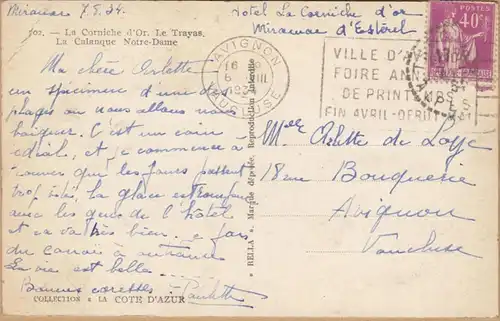 Miramar 7.8.34.
Hotel La Corniche d'or
Miramar d'Esterel
702. - La Corniche d'Or. Le Trayas.
La Calanque Notre-Dame
Ma chère Arlette
un specimen d'une des
plages où nous allons nous
baigner. C'est un coin
idéal, et je commence à
trouver que les jours passent
trop vite. La glace est rompue
avec les gens de l'hôtel
et ça va très bien. Je fais
du canoë à outrance
La vie est belle
Bonnes caresses - Paulette
COLLECTION LA COTE D'AZUR
"BELLA" Marque déposée, Reproduction Interdite
AVIGNON
16
8 VIII
VAUCLUSE
VILLE D'
FOIRE
DE PRINTEMPS
FIN AVRIL-DEBUT MAI
40c
Melle Arlette de
18 rue Bouquerie
Avignon
Vaucluse